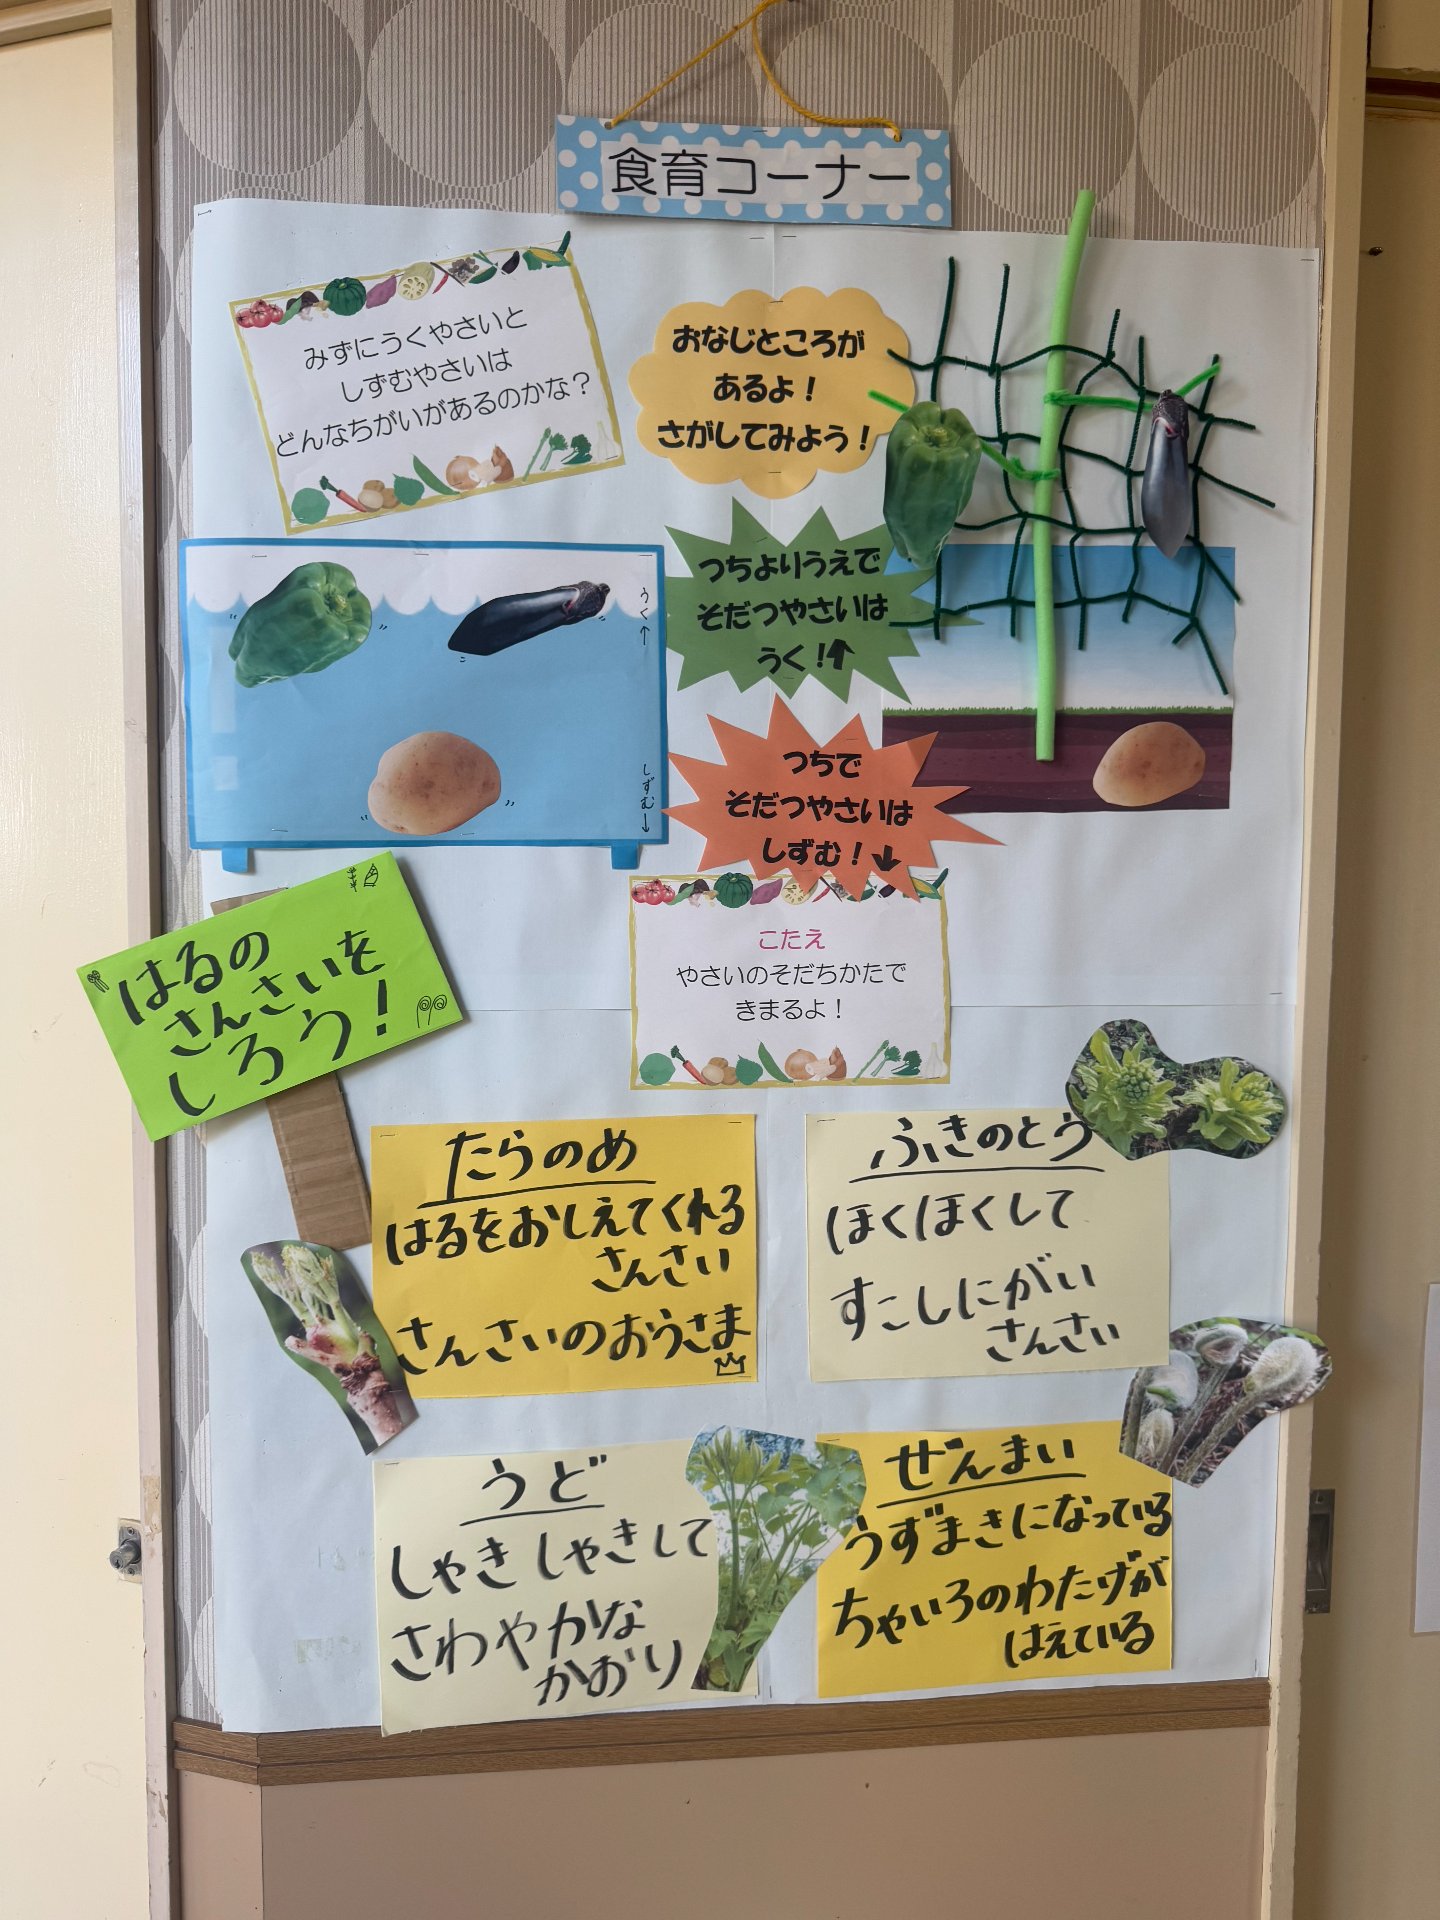 食育コーナー
みずにうくやさいと
しずむやさいは
どんなちがいがあるのかな？
おなじところが
あるよ！
さがしてみよう！
うく↑
しずむ↓
つちよりうえで
そだつやさいは
うく！↑
つちで
そだつやさいは
しずむ！↓
こたえ
やさいのそだちかたで
きまるよ！
はるの
さんさいを
しろう！
たらのめ
はるをおしえてくれる
さんさい
さんさいのおうさま
ふきのとう
ほくほくして
すこしにがい
さんさい
うど
しゃきしゃきして
さわやかな
かおり
ぜんまい
うずまきになっている
ちゃいろのわたげが
はえている